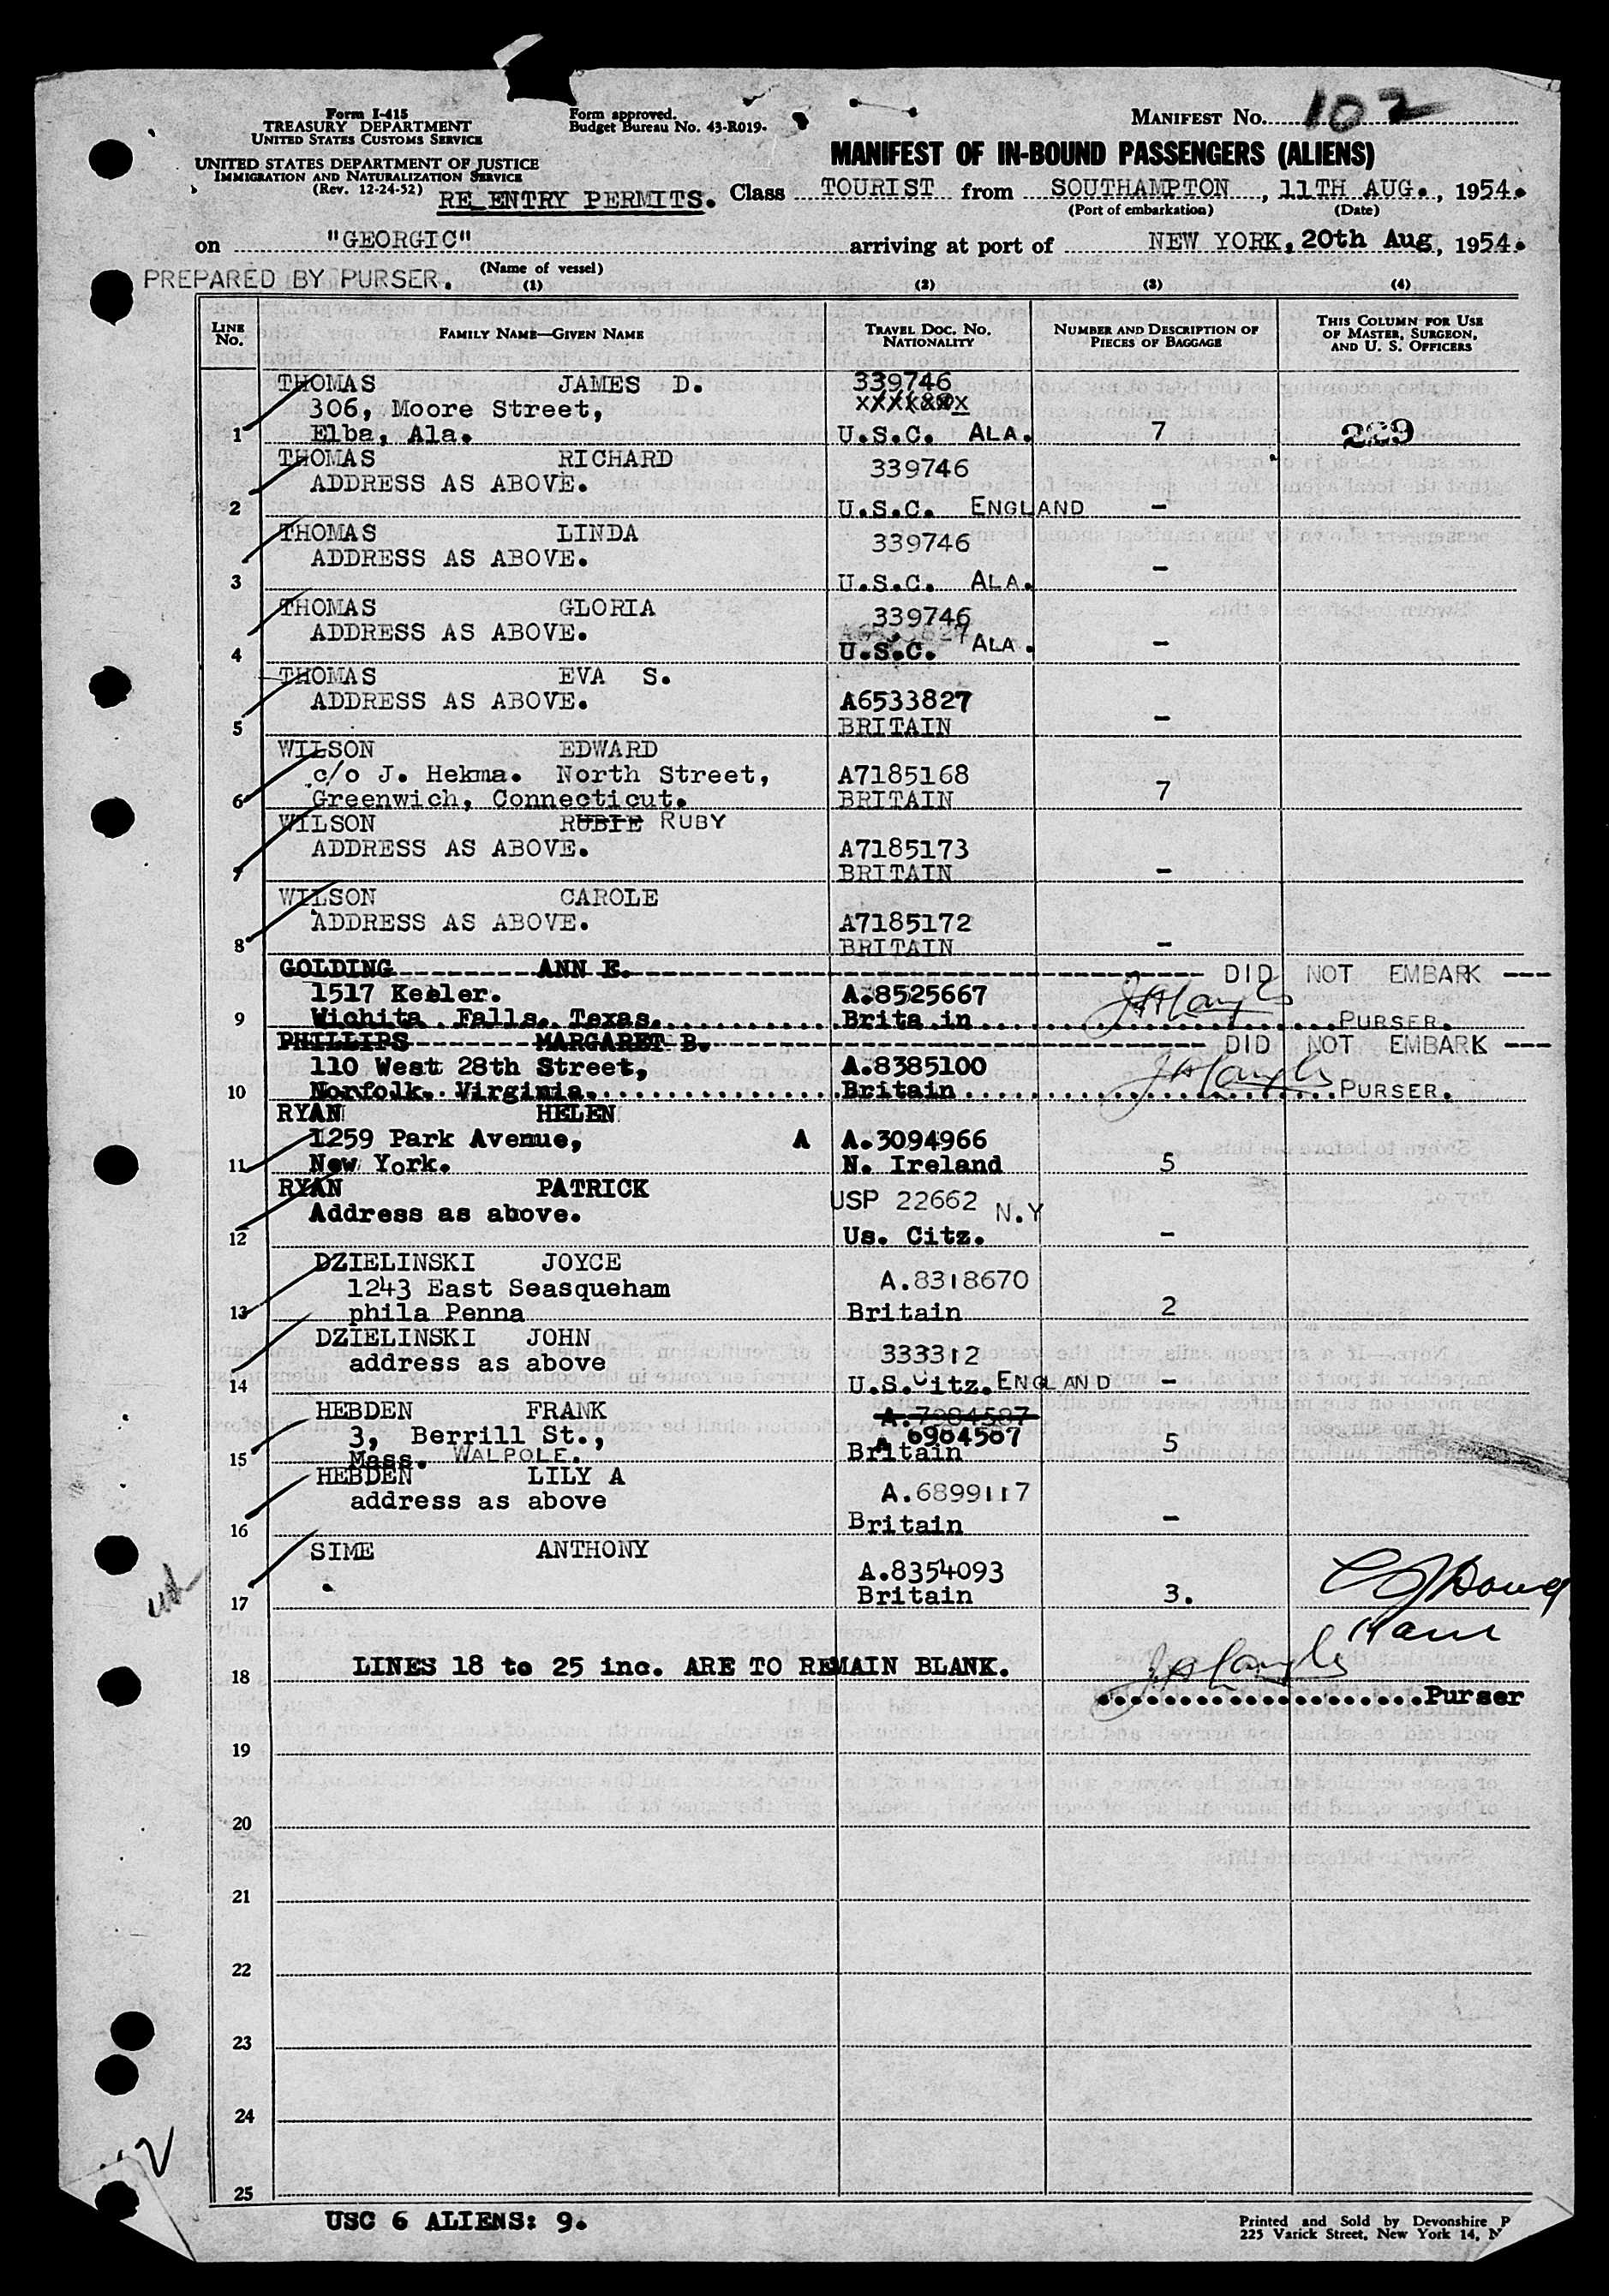 Form I-415
TREASURY DEPARTMENT
UNITED STATES CUSTOMS SERVICE
UNITED STATES DEPARTMENT OF JUSTICE
IMMIGRATION AND NATURALIZATION SERVICE
(Rev. 12-24-52)
Form approved.
Budget Bureau No. 43-R019.
MANIFEST No. 102
MANIFEST OF IN-BOUND PASSENGERS (ALIENS)
RE ENTRY PERMITS. Class TOURIST from SOUTHAMPTON, 11TH AUG., 1954.
(Port of embarkation) (Date)
on "GEORGIC" arriving at port of NEW YORK, 20th Aug, 1954.
PREPARED BY PURSER. (Name of vessel)
(1) (2) (3) (4)
LINE No. FAMILY NAME—GIVEN NAME TRAVEL DOC. NO. NATIONALITY NUMBER AND DESCRIPTION OF PIECES OF BAGGAGE THIS COLUMN FOR USE OF MASTER, SURGEON, AND U. S. OFFICERS
THOMAS JAMES D. 339746
306, Moore Street,
1 Elba, Ala. U.S.C. ALA. 7 229
THOMAS RICHARD 339746
ADDRESS AS ABOVE.
2 U.S.C. ENGLAND -
THOMAS LINDA 339746
ADDRESS AS ABOVE.
3 U.S.C. ALA. -
THOMAS GLORIA 339746
ADDRESS AS ABOVE.
4 U.S.C. ALA. -
THOMAS EVA S.
ADDRESS AS ABOVE. A6533827
5 BRITAIN -
WILSON EDWARD
c/o J. Hekma. North Street, A7185168
6 Greenwich, Connecticut. BRITAIN 7
WILSON RUBIE RUBY
ADDRESS AS ABOVE. A7185173
7 BRITAIN -
WILSON CAROLE
ADDRESS AS ABOVE. A7185172
8 BRITAIN -
GOLDING ANN E. DID NOT EMBARK ---
1517 Keeler. A.8525667
9 Wichita Falls. Texas. Brita in PURSER.
PHILLIPS MARGARET B. DID NOT EMBARK ---
110 West 28th Street, A.8385100
10 Norfolk. Virginia. Britain PURSER.
RYAN HELEN
1259 Park Avenue, A A.3094966
11 New York. N. Ireland 5
RYAN PATRICK USP 22662 N.Y
Address as above.
12 Us. Citz. -
DZIELINSKI JOYCE
1243 East Seasqueham A.8318670
13 phila Penna Britain 2
DZIELINSKI JOHN
address as above 333312
14 U.S.Citz. ENGLAND -
HEBDEN FRANK A.7984587
3, Berrill St., A 6904507
15 Mass. WALPOLE. Britain 5
HEBDEN LILY A
address as above A.6899117
16 Britain -
SIME ANTHONY
A.8354093
17 Britain 3.
18 LINES 18 to 25 inc. ARE TO REMAIN BLANK.
Purser
19
20
21
22
23
24
25
USC 6 ALIENS: 9.
Printed and Sold by Devonshire P
225 Varick Street, New York 14, N